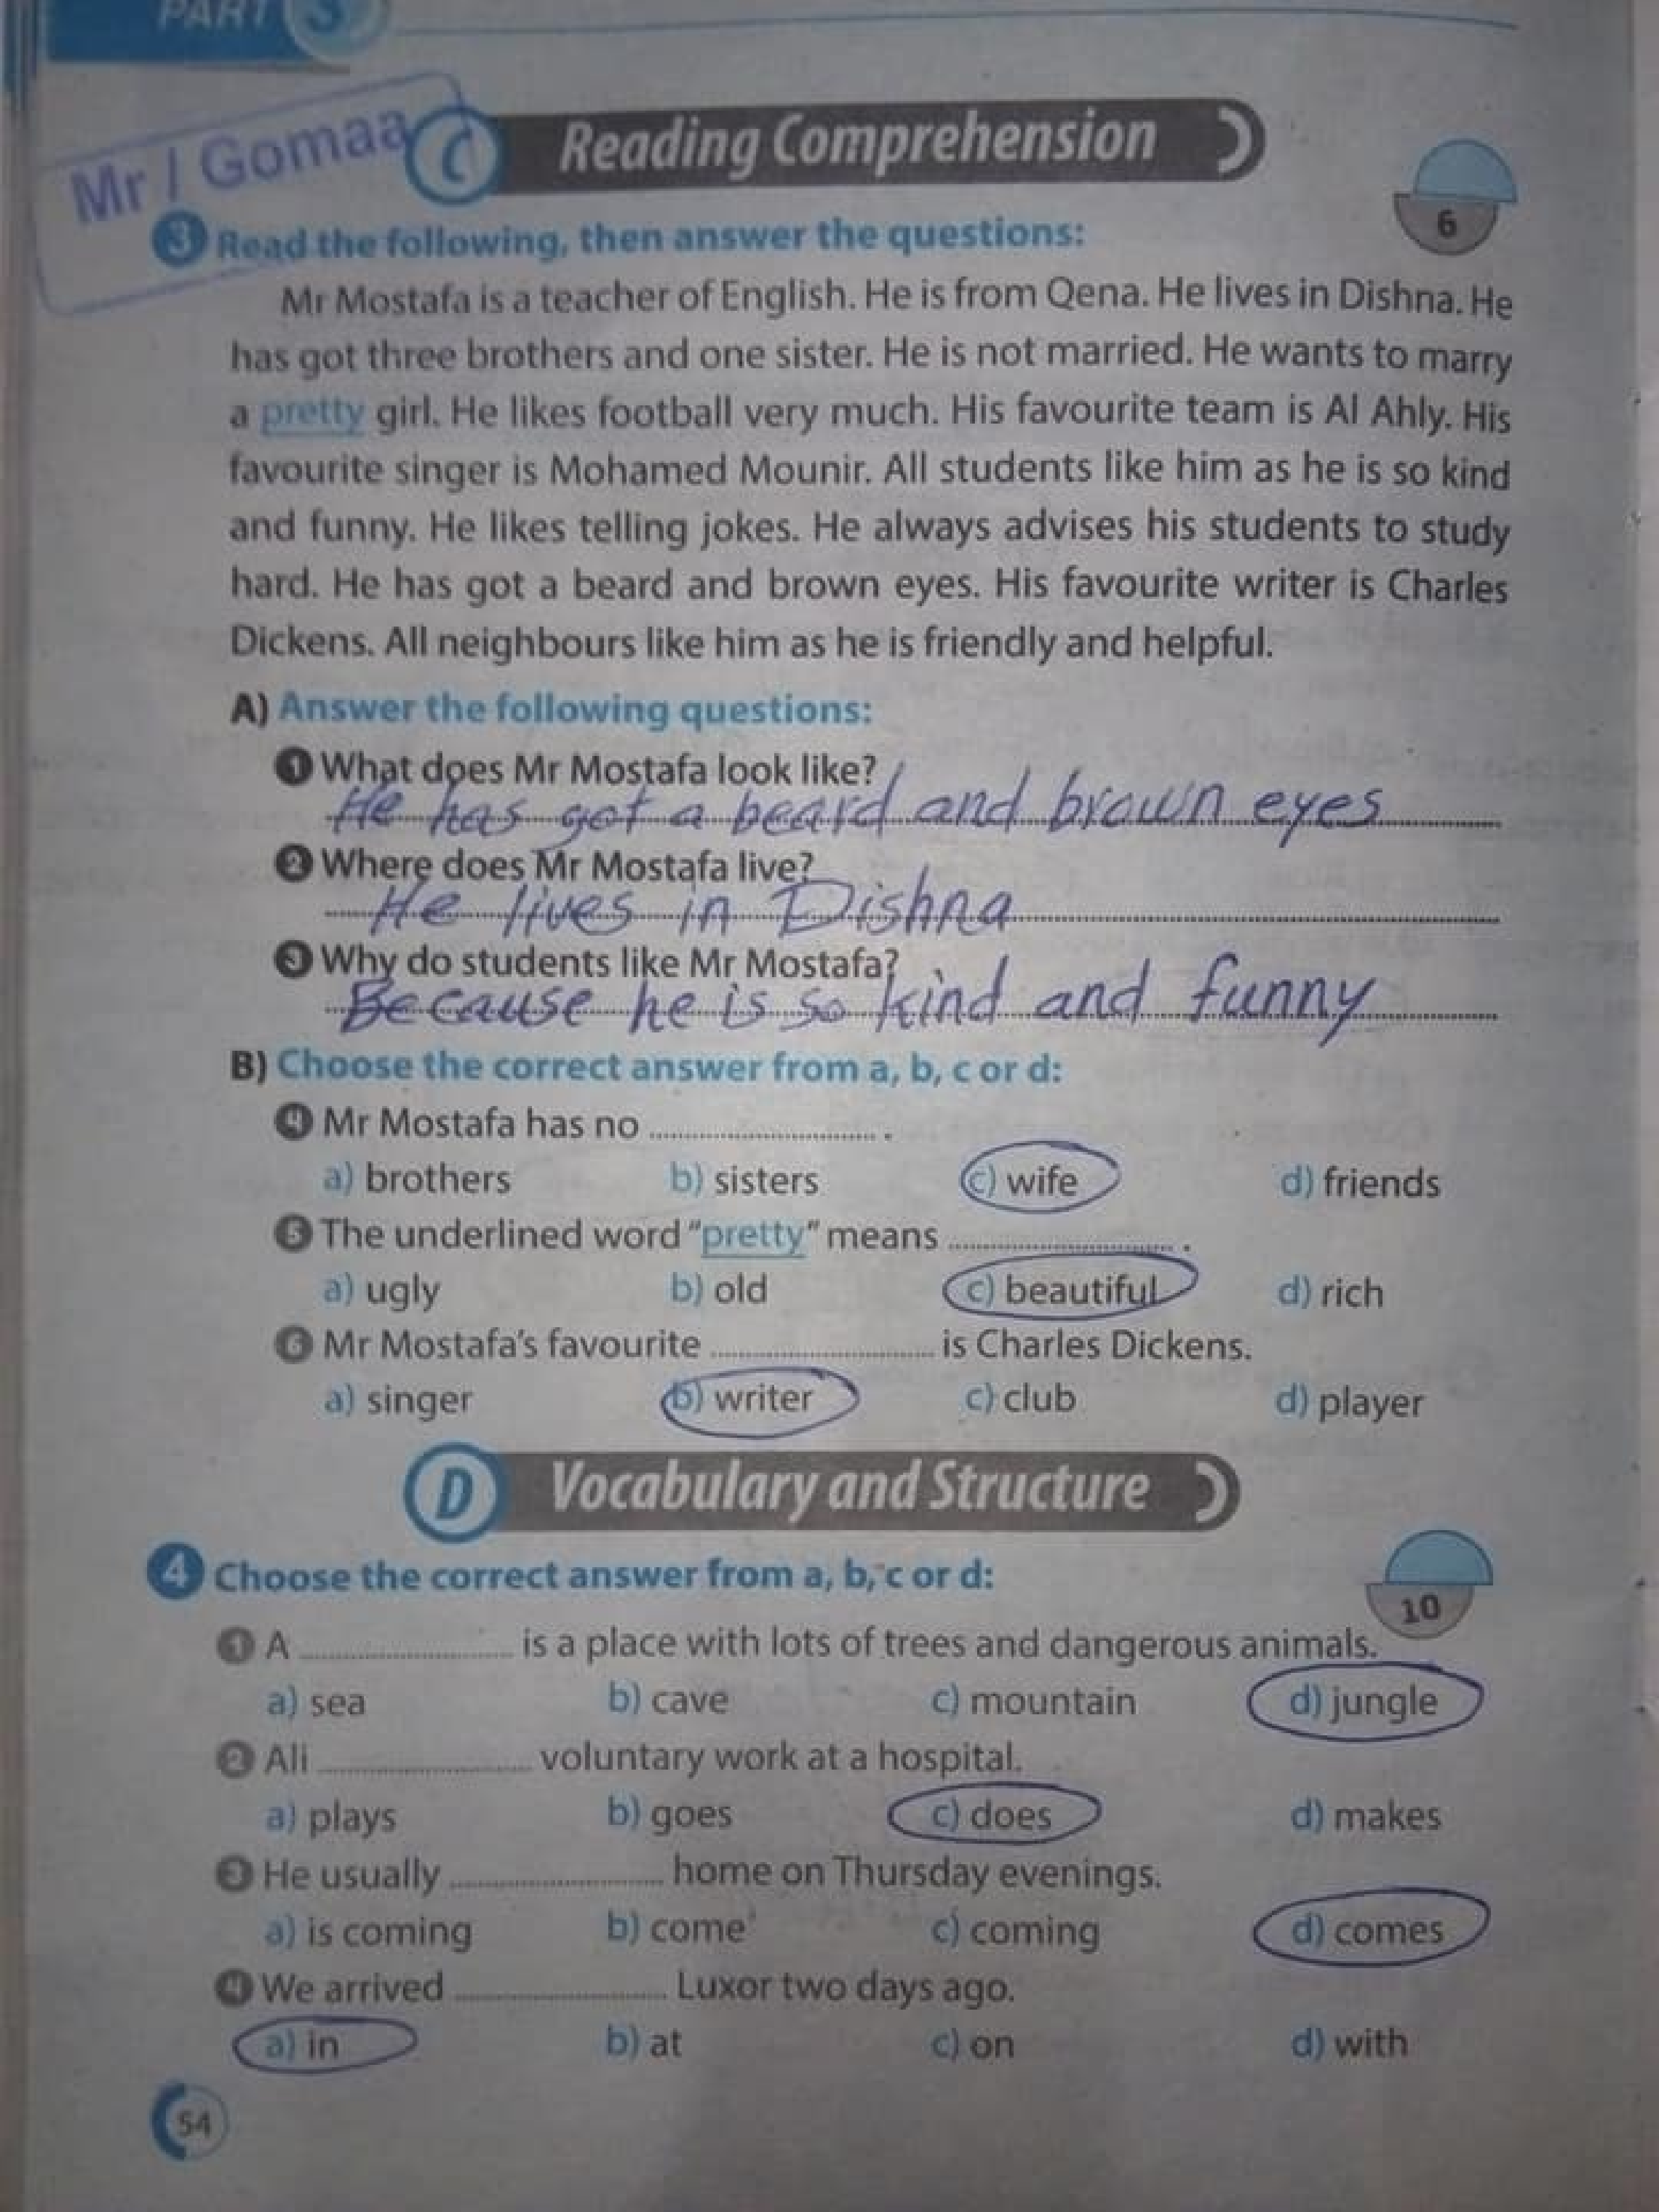 PART 3
Mr / Gomaa
C Reading Comprehension
6
3 Read the following, then answer the questions:
Mr Mostafa is a teacher of English. He is from Qena. He lives in Dishna. He
has got three brothers and one sister. He is not married. He wants to marry
a pretty girl. He likes football very much. His favourite team is Al Ahly. His
favourite singer is Mohamed Mounir. All students like him as he is so kind
and funny. He likes telling jokes. He always advises his students to study
hard. He has got a beard and brown eyes. His favourite writer is Charles
Dickens. All neighbours like him as he is friendly and helpful.
A) Answer the following questions:
1 What does Mr Mostafa look like?
He has got a beard and brown eyes
2 Where does Mr Mostafa live?
He lives in Dishna
3 Why do students like Mr Mostafa?
Because he is so kind and funny
B) Choose the correct answer from a, b, c or d:
4 Mr Mostafa has no .................... .
a) brothers b) sisters c) wife d) friends
5 The underlined word "pretty" means .................... .
a) ugly b) old c) beautiful d) rich
6 Mr Mostafa's favourite .................... is Charles Dickens.
a) singer b) writer c) club d) player
D Vocabulary and Structure
10
4 Choose the correct answer from a, b, c or d:
1 A .................... is a place with lots of trees and dangerous animals.
a) sea b) cave c) mountain d) jungle
2 Ali .................... voluntary work at a hospital.
a) plays b) goes c) does d) makes
3 He usually .................... home on Thursday evenings.
a) is coming b) come c) coming d) comes
4 We arrived .................... Luxor two days ago.
a) in b) at c) on d) with
54